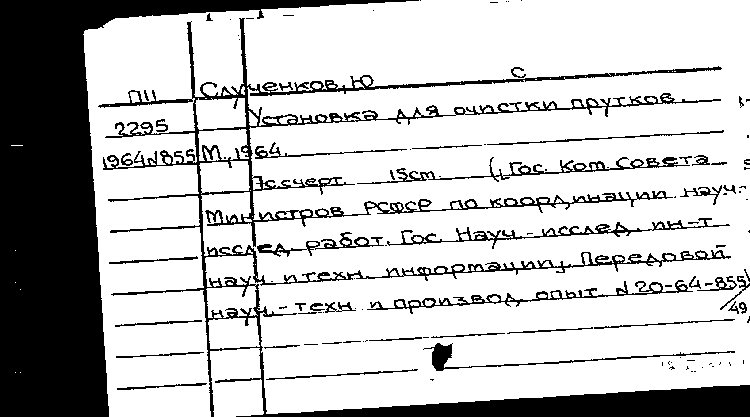 ПII Слученков, Ю С
2295 Установка для очистки прутков.
1964N855 М., 1964.
7с.счерт. 15cm. (Гос. Ком Совета
Министров РСФСР по координации науч-
исслед. работ. Гос Науч-исслед. ин-т
науч. и техн. информации). Передовой
науч.-техн и производ. опыт. N20-64-855/
49